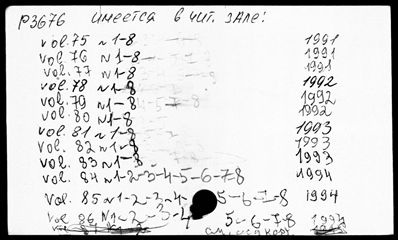 Р3676 имеется в чит. зале:
vol. 75 n 1-8 1991
vol. 76 n 1-8 1991
vol. 77 n 1-8 1991
vol. 78 n 1-8 1992
vol. 79 n 1-8 1992
vol. 80 n 1-8 1992
vol. 81 n 1-8 1993
vol. 82 n 1-8 1993
vol. 83 n 1-8 1993
vol. 84 n 1-2-3-4-5-6-7-8 1994
vol. 85 n 1-2-3-4- 5-6-7-8 1994
vol. 86 n 1-2-3-4 5-6-7-8